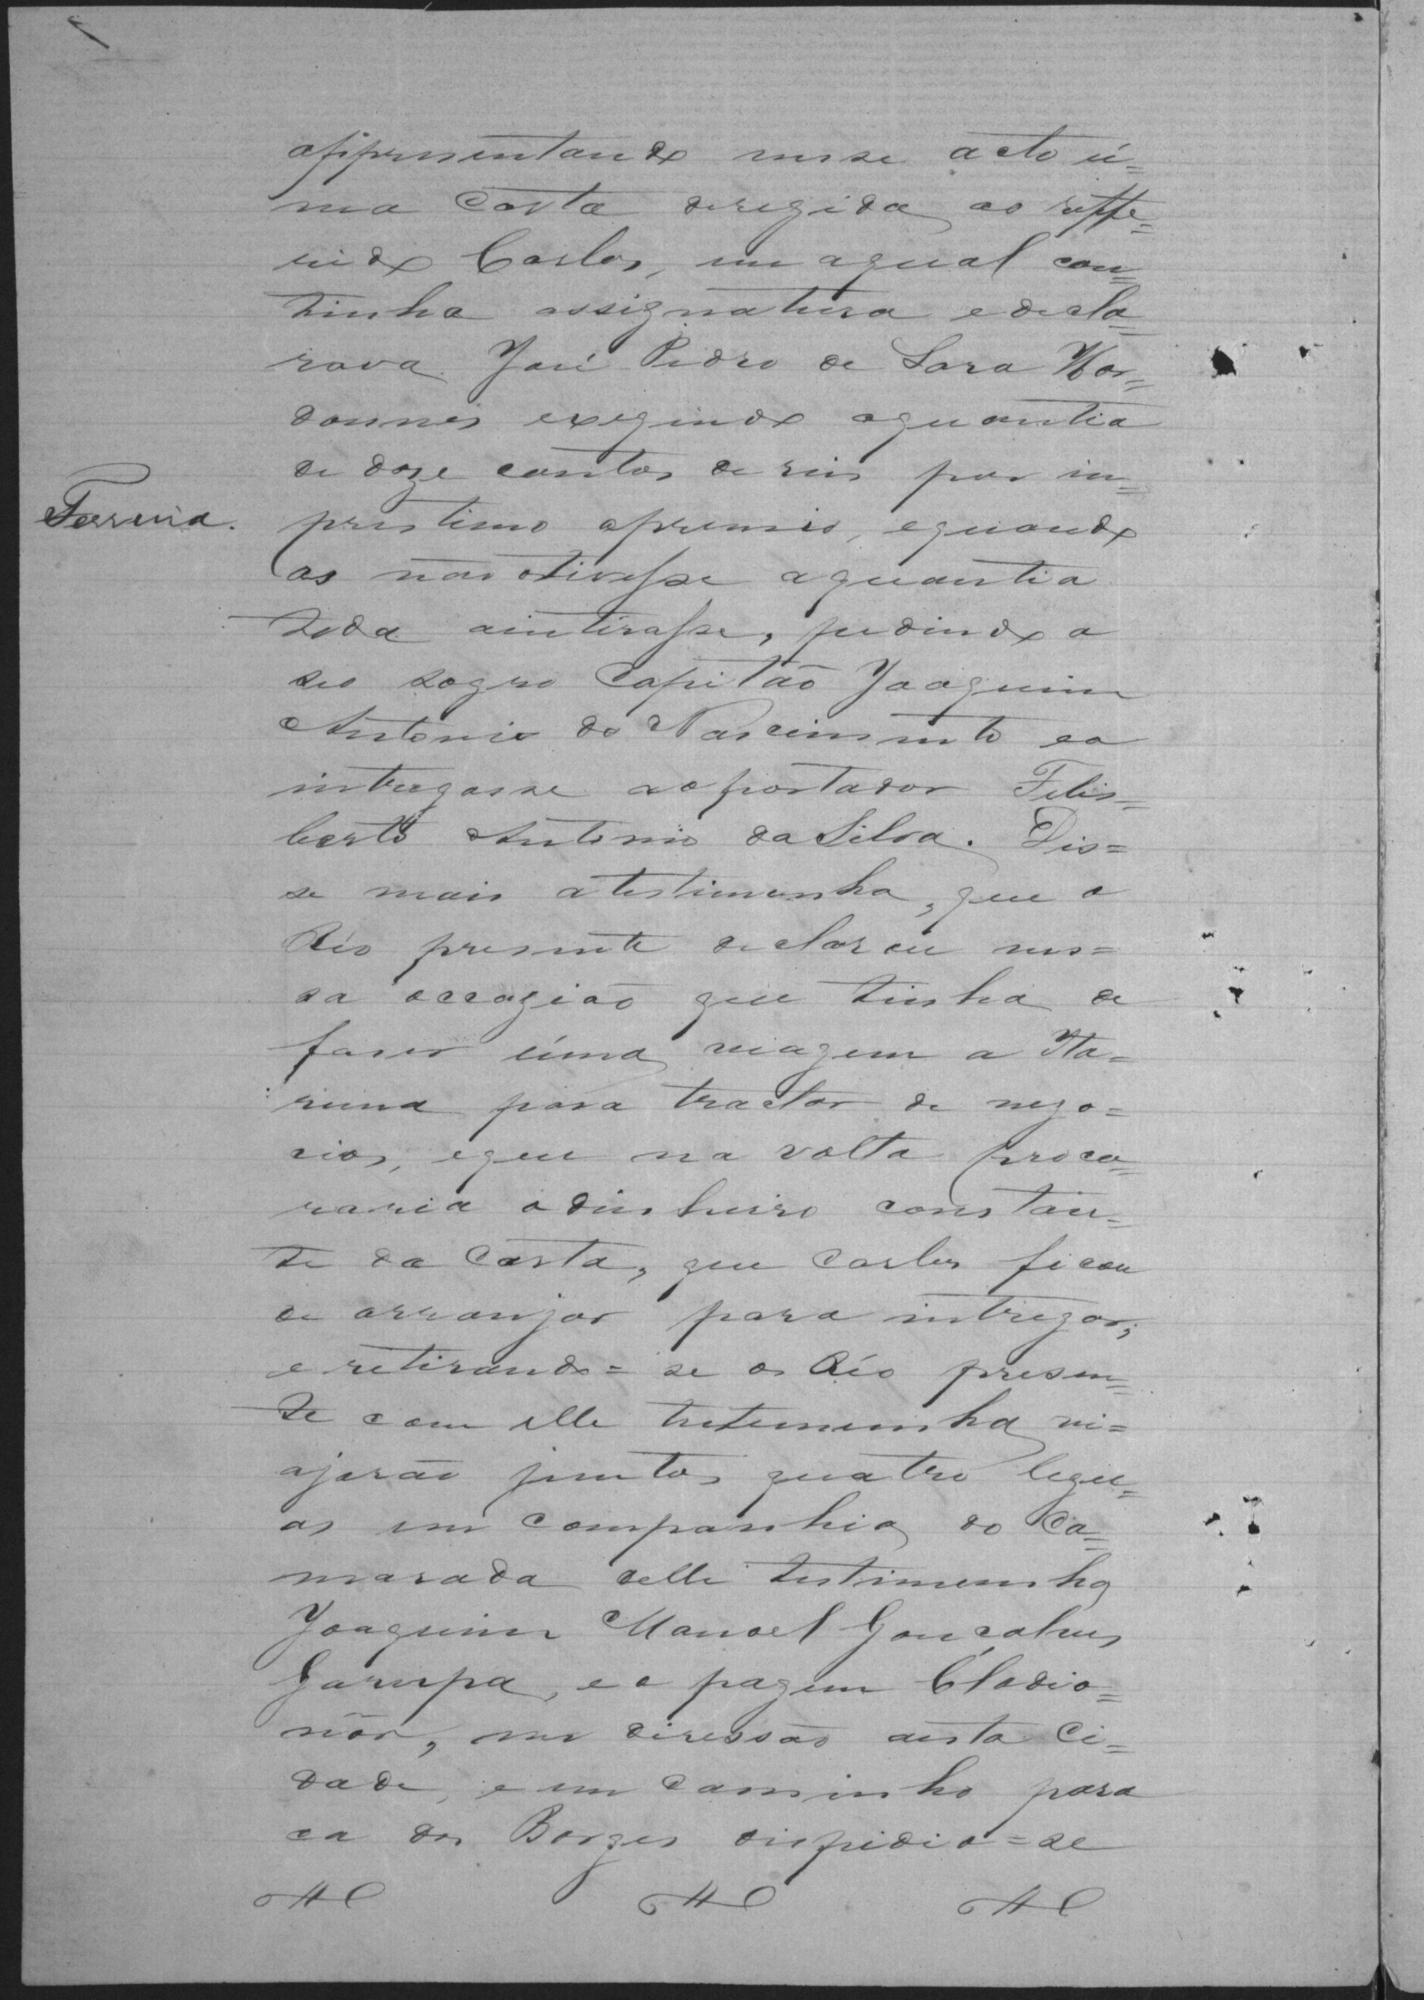 appresentando nesse acto ú=
ma Carta deregida ao reffe=
rido Carlos, em aqual con=
tinha assignatura e decla=
rava José Pedro de Lara
exegindo aquantia
de doze contos de reis por im=
Ferreira.
prestimo apremio, equando
as não otivesse aquantia
toda aintirasse, pedindo a
seo sogro Capitão Joaquim
Antonio do Nascimento ea
intregasse ao portador Felis=
berto Antonio da Silva. Dis=
se mais atestimunha, que o
Réo presente declarou nes=
sa occazião que tinha de
faser úma viagem a Ita=
riuna para tractar de nego=
cios, eque na volta proca=
raria odinheiro constan=
te da Carta, que Carlos ficou
de arranjar para intregar;
e retirando=se os Réo presen=
te com elle testemunha vi=
ajarão juntos quatro legu=
as em companhia do Ca=
marada delle testimunha
Joaquim Manoel Gonçalves
Garupa, e o pagem Clodio=
nôr, em diressão aesta Ci=
dade, e em caminho para
ca dos Borges dispidio=se